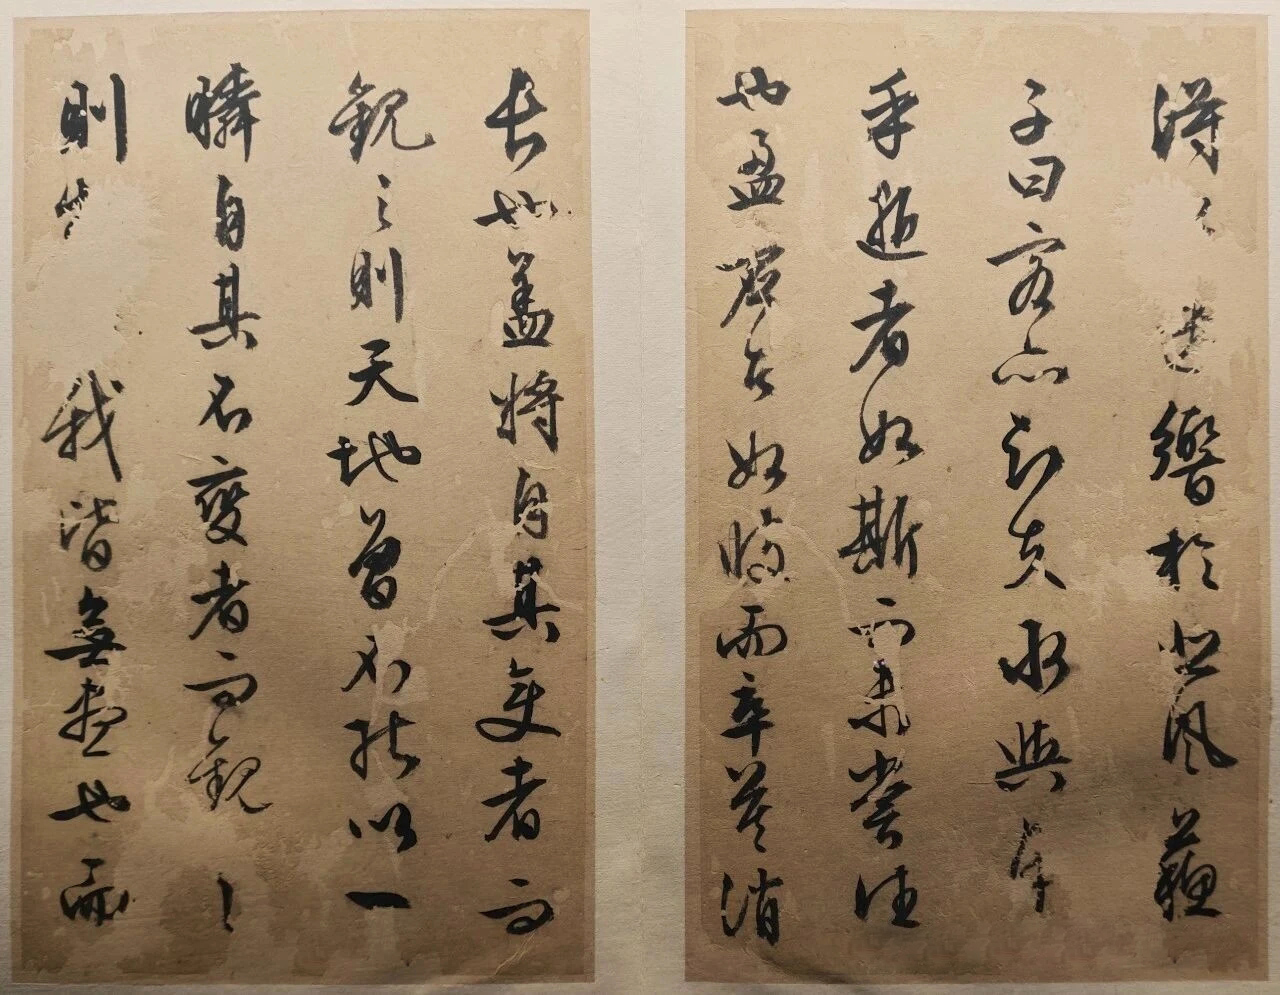 得遺響於悲風蘇
子曰客亦知夫水與
乎逝者如斯而未嘗往
也盈虛者如彼而卒莫消
長也蓋將自其變者而
觀之則天地曾不能以一
瞬自其不變者而觀之
則我皆無盡也而